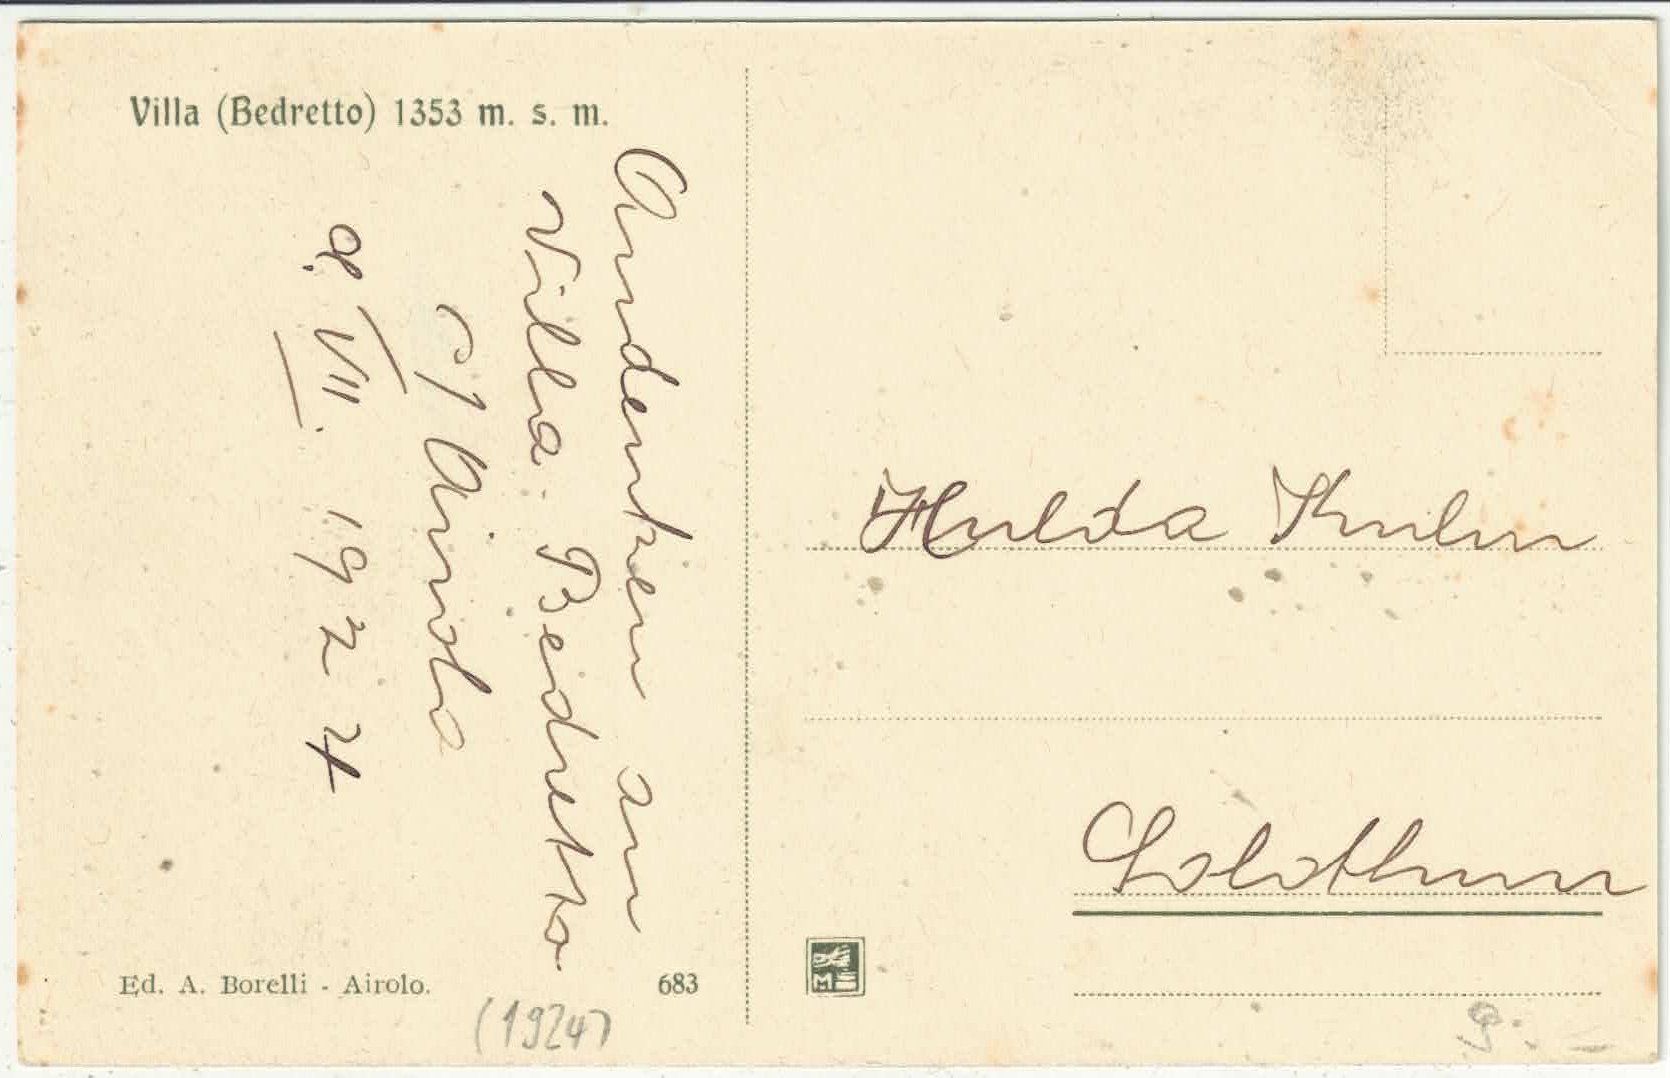 Villa (Bedretto) 1353 m. s. m.
Andenken an
Villa Bedretto
Airolo
VII. 1924
Ed. A. Borelli - Airolo.
683
(1924)
Hulda Kuhn
Solothurn